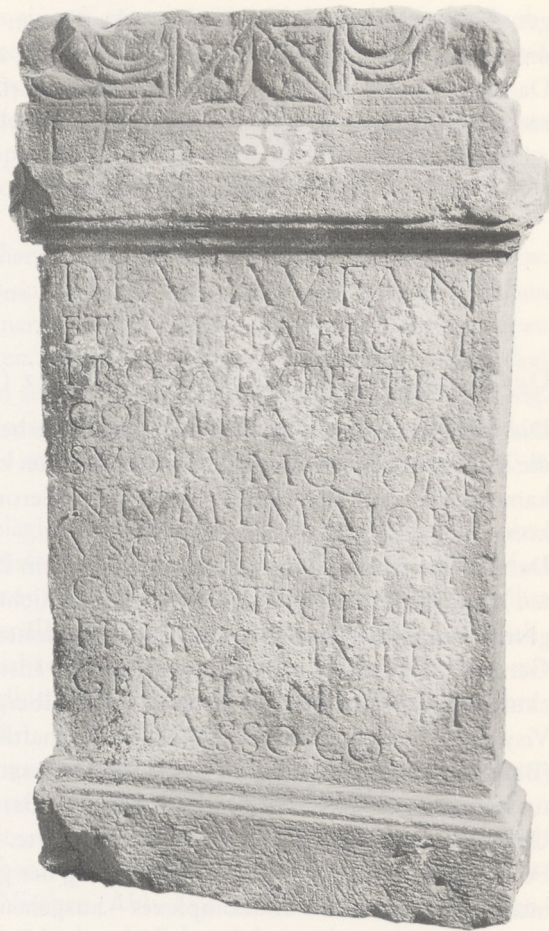 553.
DEAB AVFAN
ET TVTELAE LOCI
PRO SALVTE ET IN
COLVMITATE SVA
SVORVMQ · OM
NIVM L MAIORI
VS COGITATVS BF
COS VOT SOL L L M
IDIBVS IVLIS
GENTIANO ET
BASSO · COS